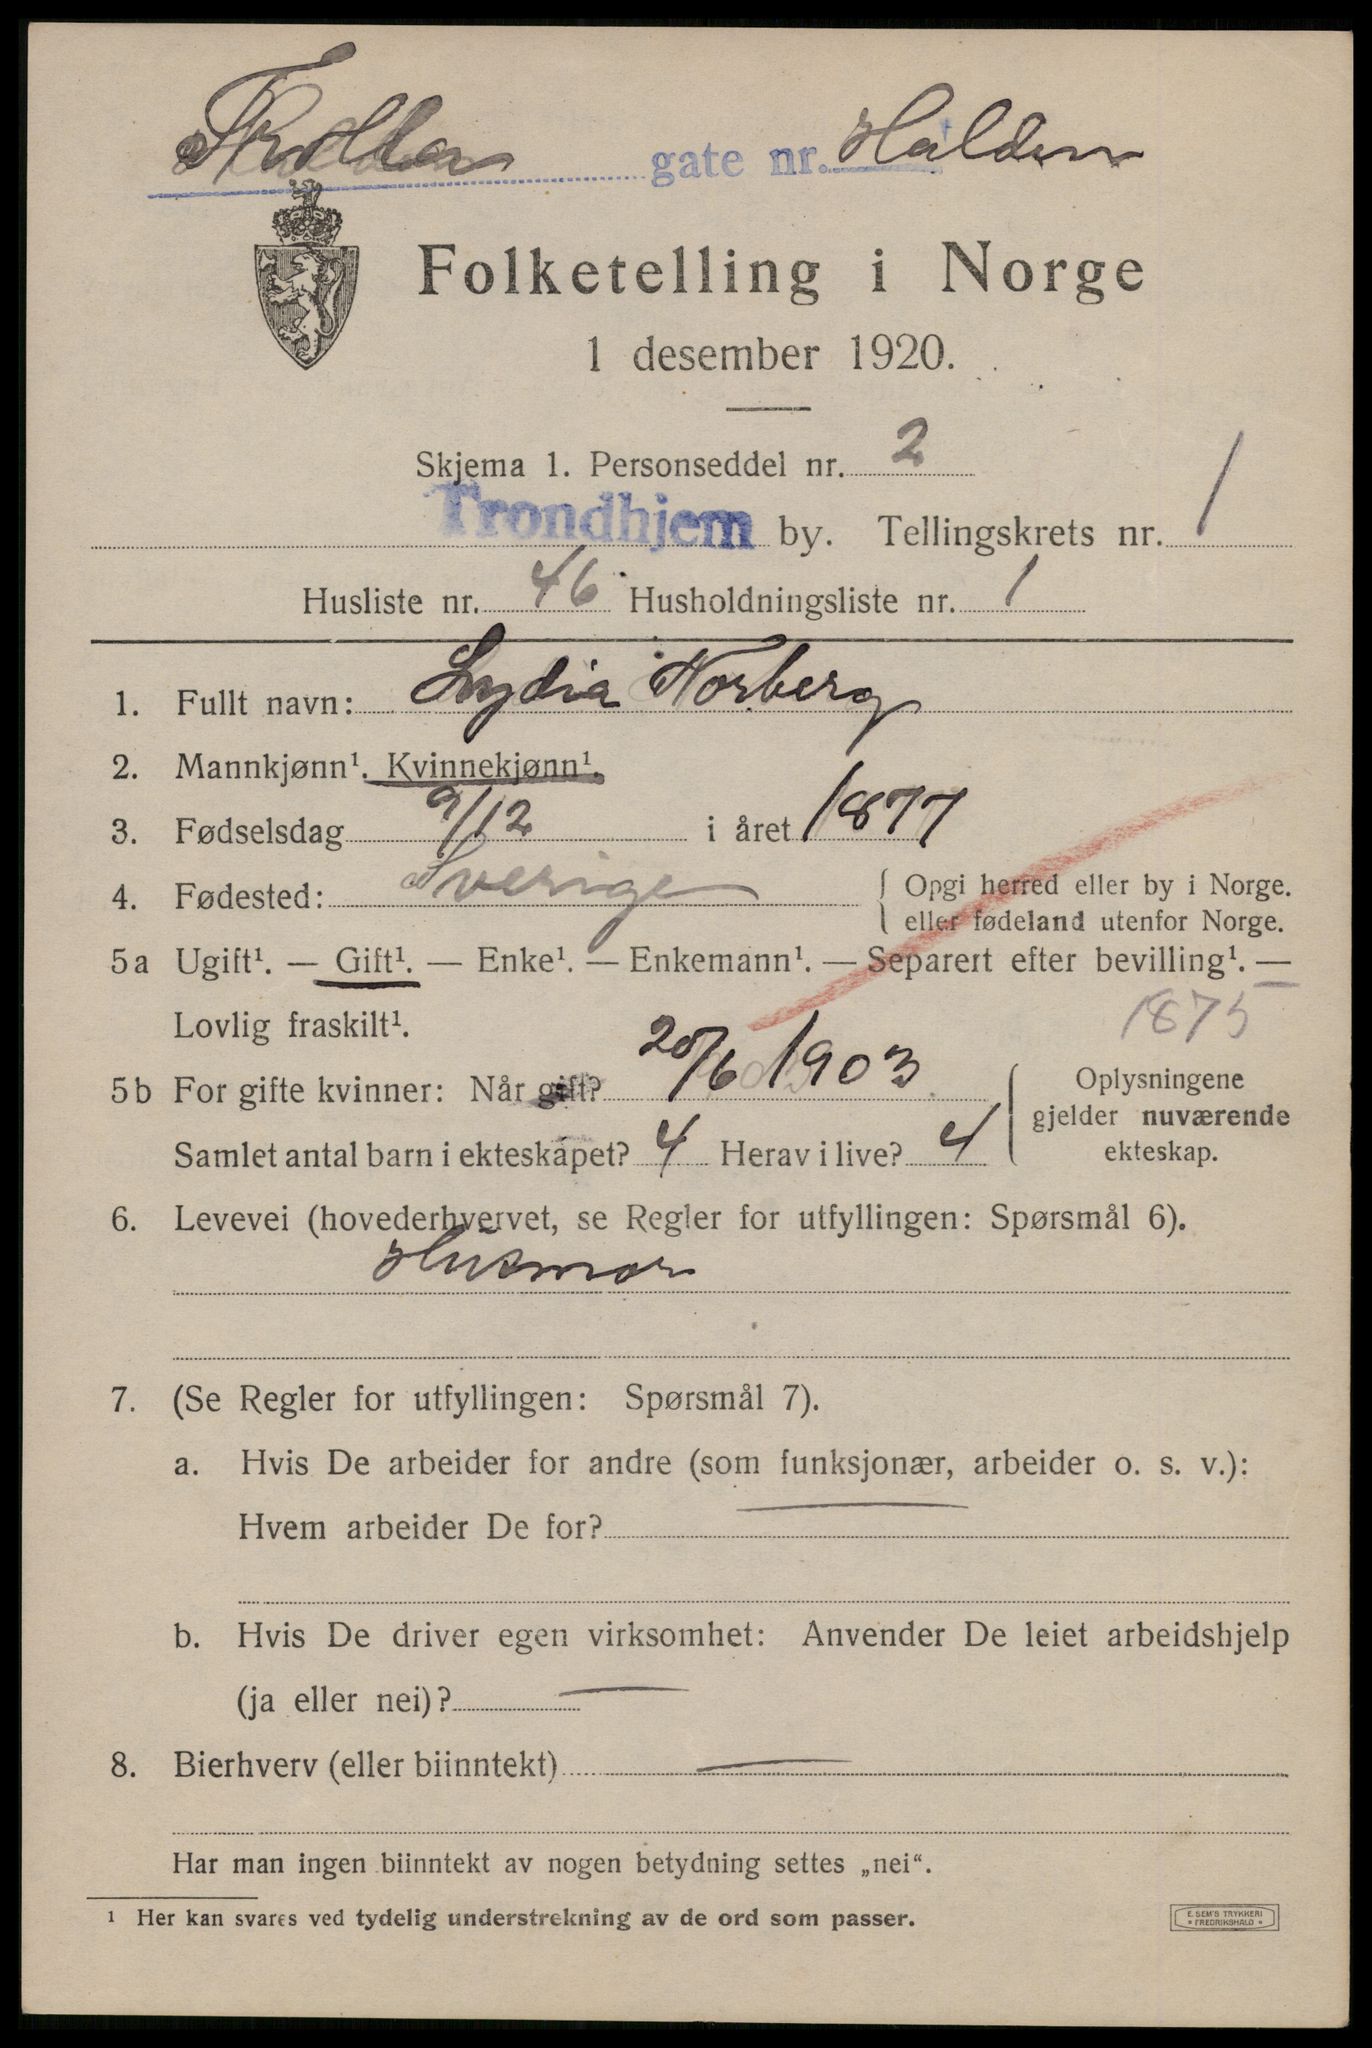 Trolla gate nr. Halden
Folketelling i Norge
1 desember 1920.
Skjema 1. Personseddel nr. 2
Trondhjem by. Tellingskrets nr. 1
Husliste nr. 46 Husholdningsliste nr. 1
1. Fullt navn: Lydia Norberg
2. Mannkjønn¹. Kvinnekjønn¹.
3. Fødselsdag 9/12 i året 1877
4. Fødested: Sverige { Opgi herred eller by i Norge.
eller fødeland utenfor Norge.
5a Ugift¹. — Gift¹. — Enke¹. — Enkemann¹. — Separert efter bevilling¹. —
Lovlig fraskilt¹. 1875
5b For gifte kvinner: Når gift? 20/6 1903
Samlet antal barn i ekteskapet? 4 Herav i live? 4
Oplysningene
gjelder nuværende
ekteskap.
6. Levevei (hovederhvervet, se Regler for utfyllingen: Spørsmål 6).
Husmor
7. (Se Regler for utfyllingen: Spørsmål 7).
a. Hvis De arbeider for andre (som funksjonær, arbeider o. s. v.):
Hvem arbeider De for? —
b. Hvis De driver egen virksomhet: Anvender De leiet arbeidshjelp
(ja eller nei)? —
8. Bierhverv (eller biinntekt) —
Har man ingen biinntekt av nogen betydning settes „nei“.
¹ Her kan svares ved tydelig understrekning av de ord som passer.
E. SEM'S TRYKKERI
* FREDRIKSHALD *